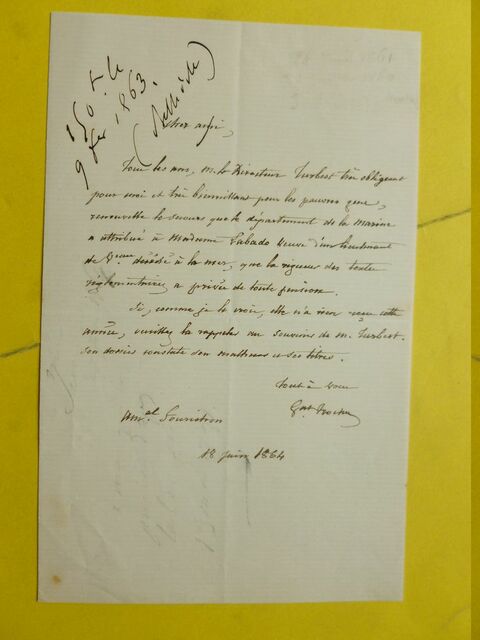 150 f. le
9 fév. 1863.
cher ami,
Tous les ans, M. le Directeur Turbert très obligeant
pour moi et très bienveillant pour les pauvres gens,
renouvelle le secours que le département de la Marine
a attribué à Madame Labado veuve d'un lieutenant
de Vaau décédé à la mer, que la rigueur des textes
règlementaires a privée de toute pension.
Si, comme je le crois, elle n'a rien reçu cette
année, veuillez la rappeler au souvenir de M. Turbert.
son dossier constate ses malheurs et ses titres.
tout à vous
Gal Trochu
18 juin 1864